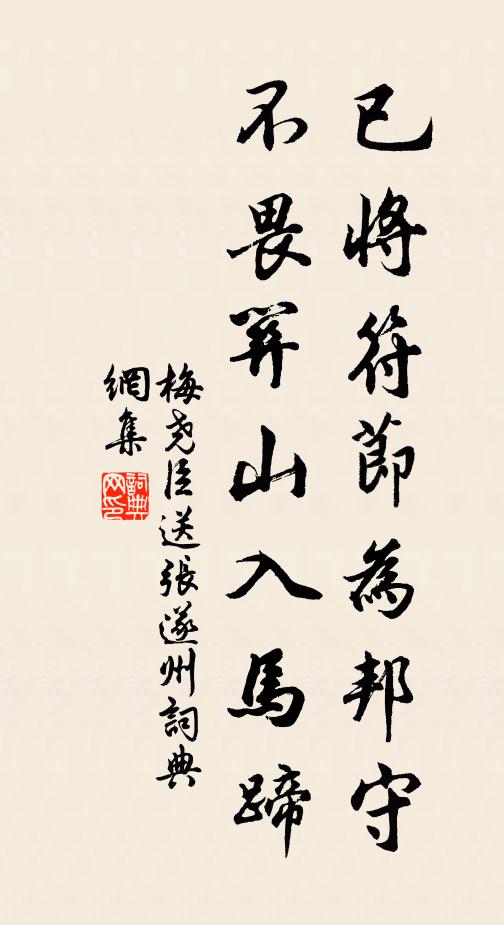 已將符節為邦守
不畏關山入馬蹄
梅堯臣送張遂州詞典
網集
詞典
网印